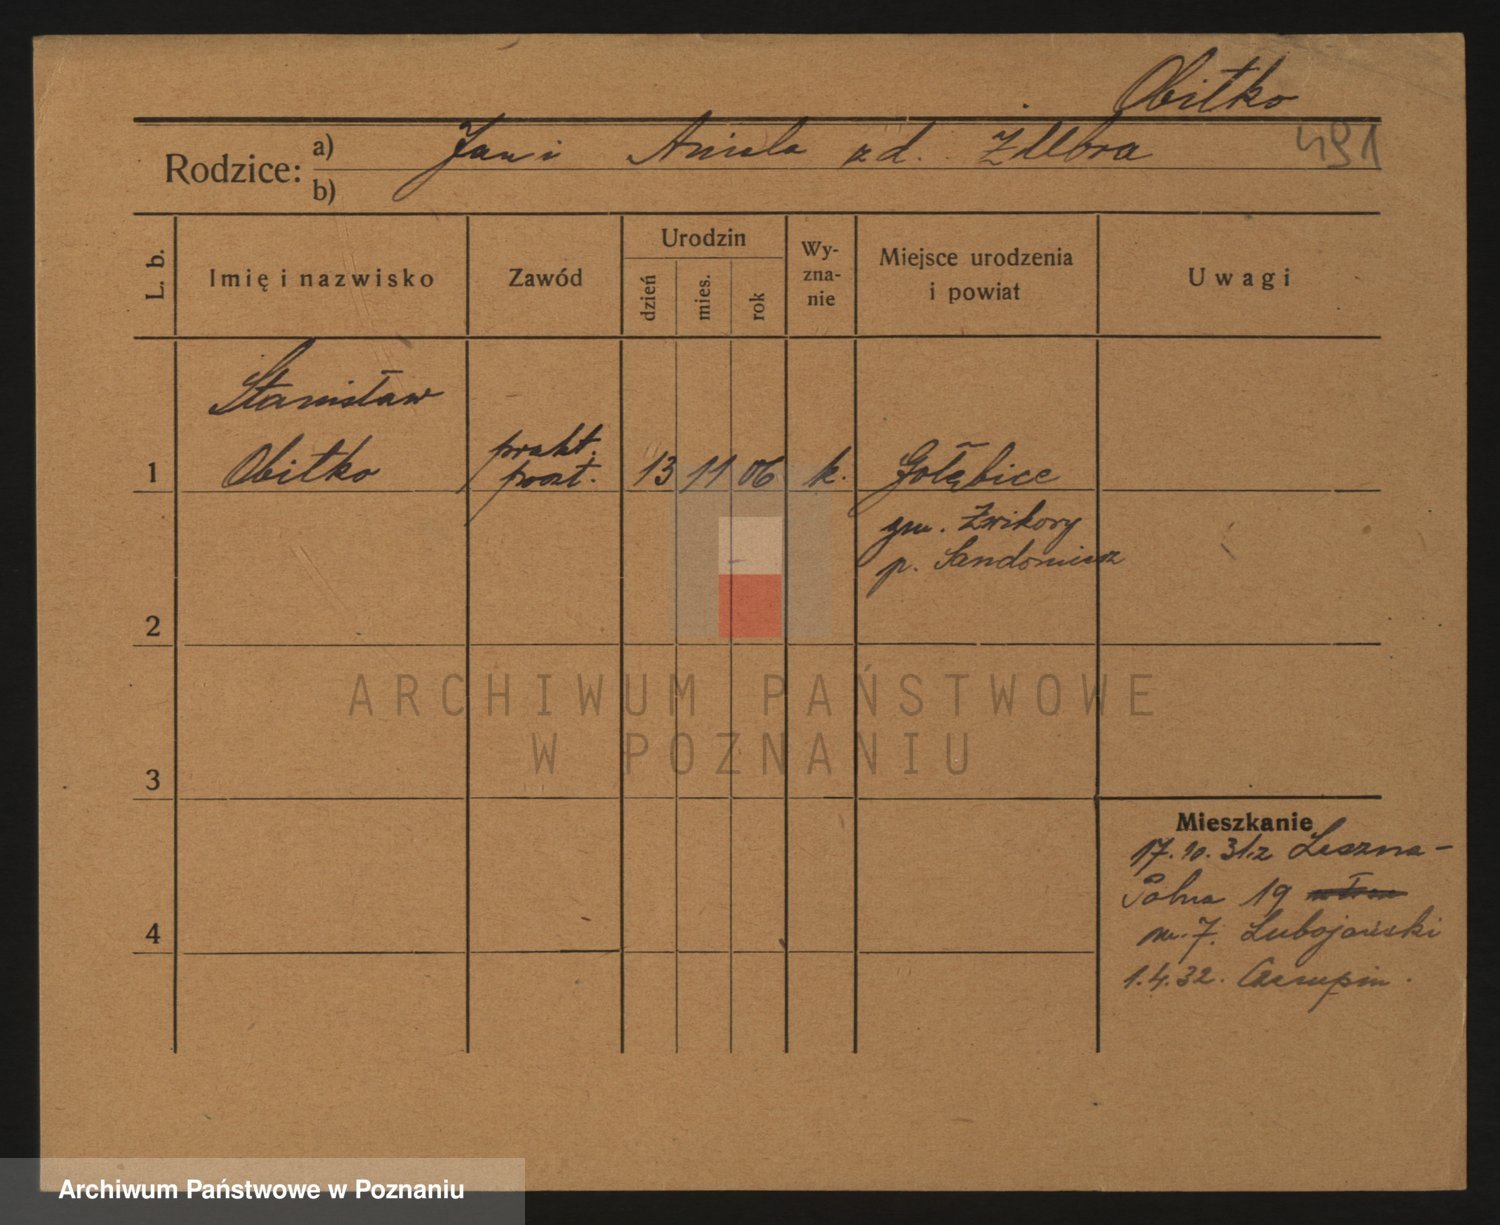 Obitko
491
Rodzice: a) Jan i Aniela z d. Zdebra
b)
L. b.
Imię i nazwisko
Zawód
Urodzin
dzień
mies.
rok
Wy-
zna-
nie
Miejsce urodzenia
i powiat
Uwagi
Stanisław
1 Obitko
prakt.
poczt.
13 11 06 k. Gołębice
gm. Zwikory
p. Sandomierz
2
3
4
Mieszkanie
17.10.31. z Leszna -
Polna 19
m. 7. Lubojański
1.4.32.
ARCHIWUM PAŃSTWOWE
W POZNANIU
Archiwum Państwowe w Poznaniu